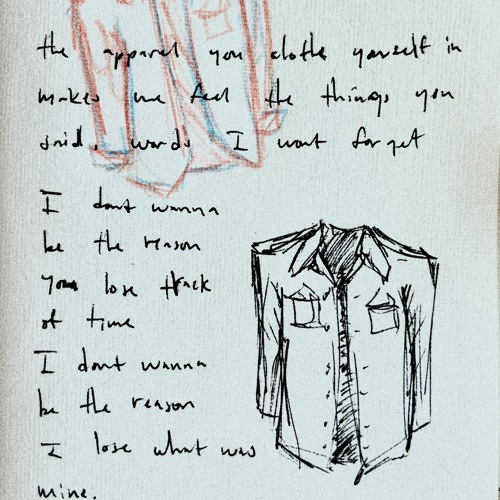 the apparel you clothe yourself in
makes me feel the things you
said. words I wont forget
I dont wanna
be the reason
you lose track
of time
I dont wanna
be the reason
I lose what was
mine.